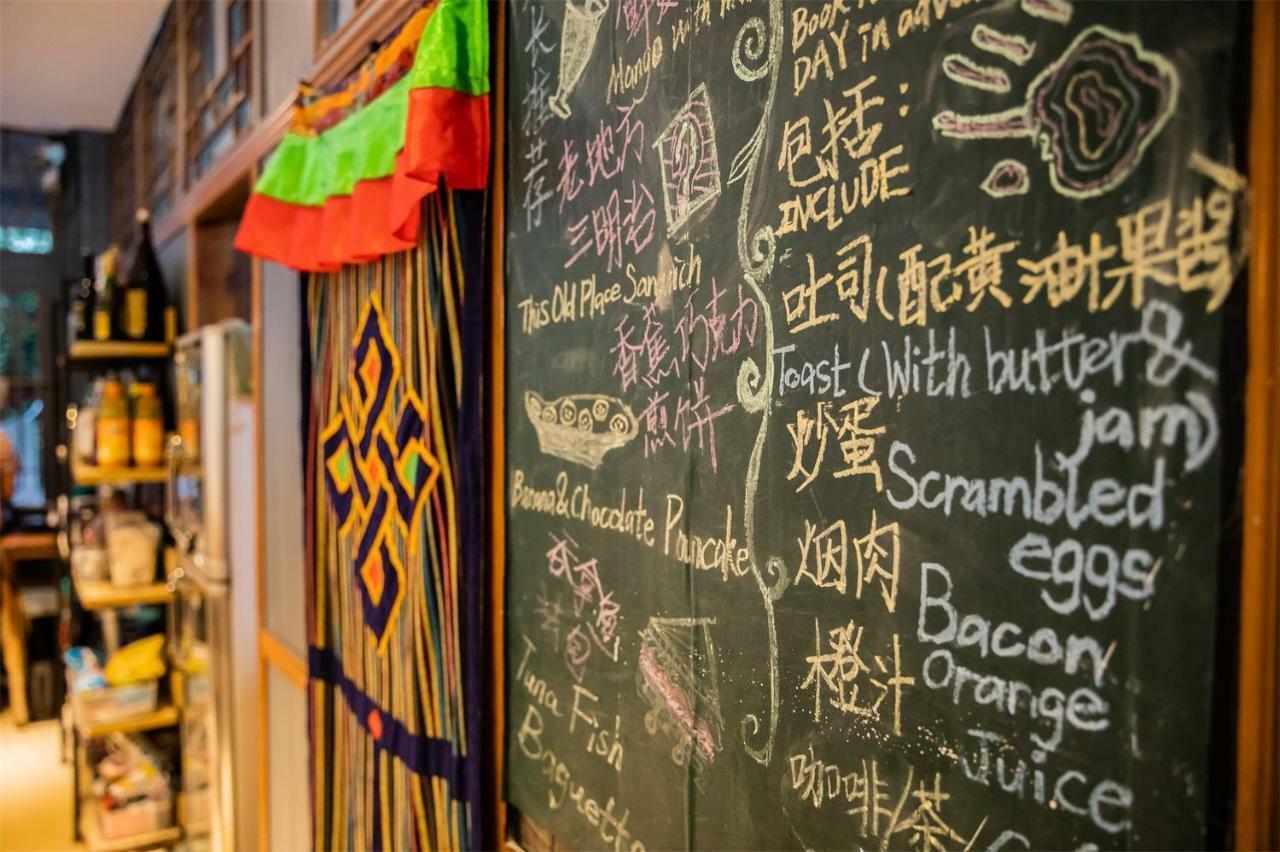 长
推
荐
Mango with
老地方
三明治
This Old Place Sanwich
香蕉巧克力
煎饼
Banana & Chocolate Pancake
Tuna Fish
Baguette
Book
DAY in adva
包括:
INCLUDE
吐司(配黄油叶果酱
Toast (With butter &
jam)
炒蛋
Scrambled
eggs
烟肉
Bacon
橙汁
Orange
Juice
咖啡/茶